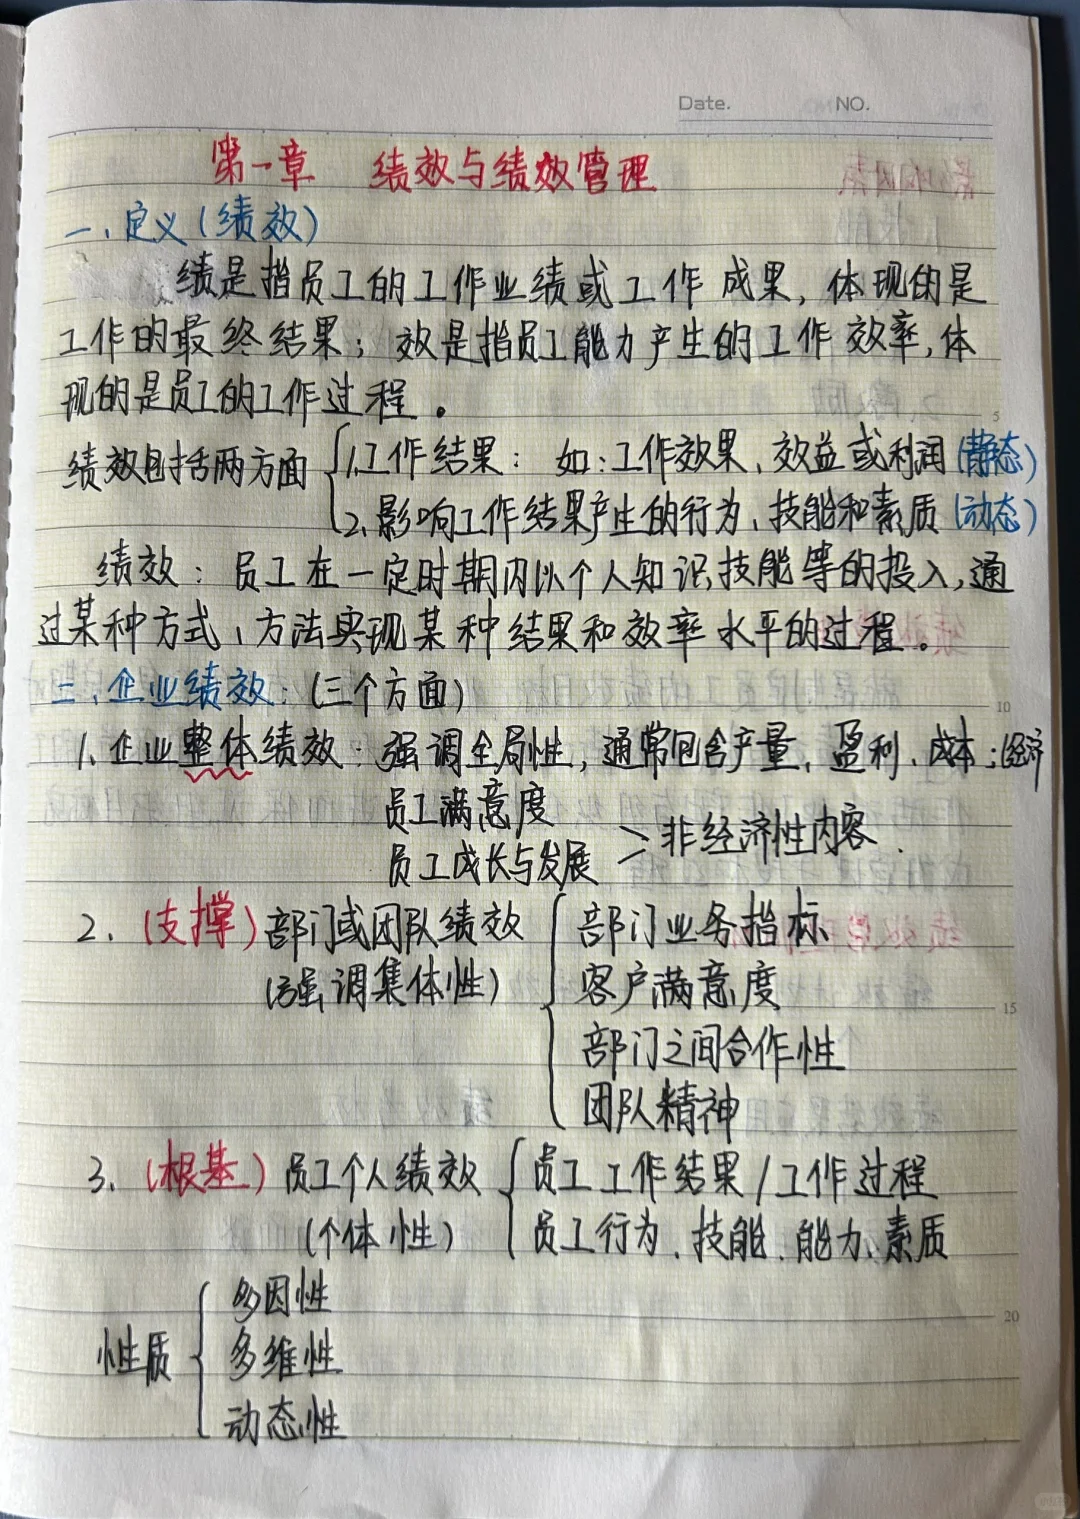 Date. NO.
第一章 绩效与绩效管理
一、定义（绩效）
绩是指员工的工作业绩或工作成果，体现的是
工作的最终结果；效是指员工能力产生的工作效率，体
现的是员工的工作过程。
绩效包括两方面
1、工作结果：如：工作效果、效益或利润（静态）
2、影响工作结果产生的行为、技能和素质（动态）
绩效：员工在一定时期内以个人知识技能等的投入，通
过某种方式、方法实现某种结果和效率水平的过程。
二、企业绩效：（三个方面）
1、企业整体绩效：强调全局性，通常包含产量、盈利、成本：经济
员工满意度
员工成长与发展
非经济性内容.
2、（支撑）部门或团队绩效
（强调集体性）
部门业务指标
客户满意度
部门之间合作性
团队精神
3、（根基）员工个人绩效
（个体性）
员工工作结果/工作过程
员工行为、技能、能力、素质
性质
多因性
多维性
动态性
5
10
15
20